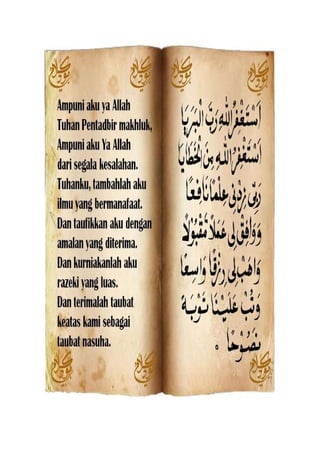 Ampuni aku ya Allah
Tuhan Pentadbir makhluk,
Ampuni aku Ya Allah
dari segala kesalahan.
Tuhanku, tambahlah aku
ilmu yang bermanafaat.
Dan taufikkan aku dengan
amalan yang diterima.
Dan kurniakanlah aku
razeki yang luas.
Dan terimalah taubat
keatas kami sebagai
taubat nasuha.
اَسْتَغْفِرُ اللهَ رَبَّ الْبَرَايَا
اَسْتَغْفِرُ اللهَ مِنَ الْخَطَايَا
رَبِّ زِدْنِي عِلْمًا نَافِعًا
وَوَافِقْ لِي عَمَلًا مَقْبُوْلًا
وَاهَبْ لِي رِزْقًا وَاسِعًا
وَتُبْ عَلَيْنَا تَوْبَةً
نَصُوْحًا